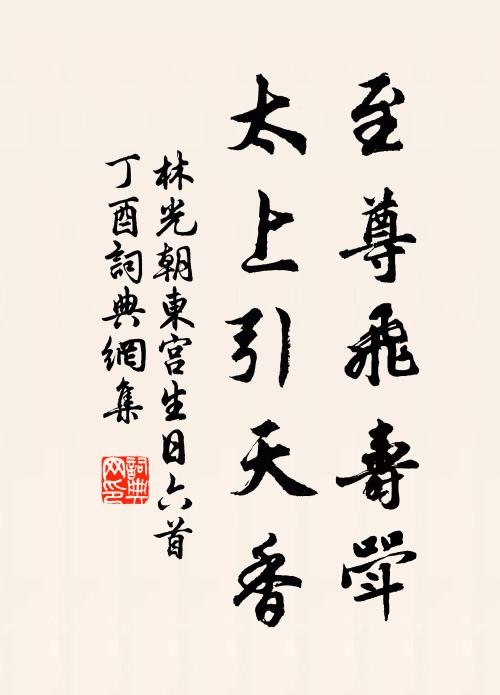 至尊飛壽斝
太上引天香
林光朝東宮生日六首
丁酉詞典網集
詞典
网印